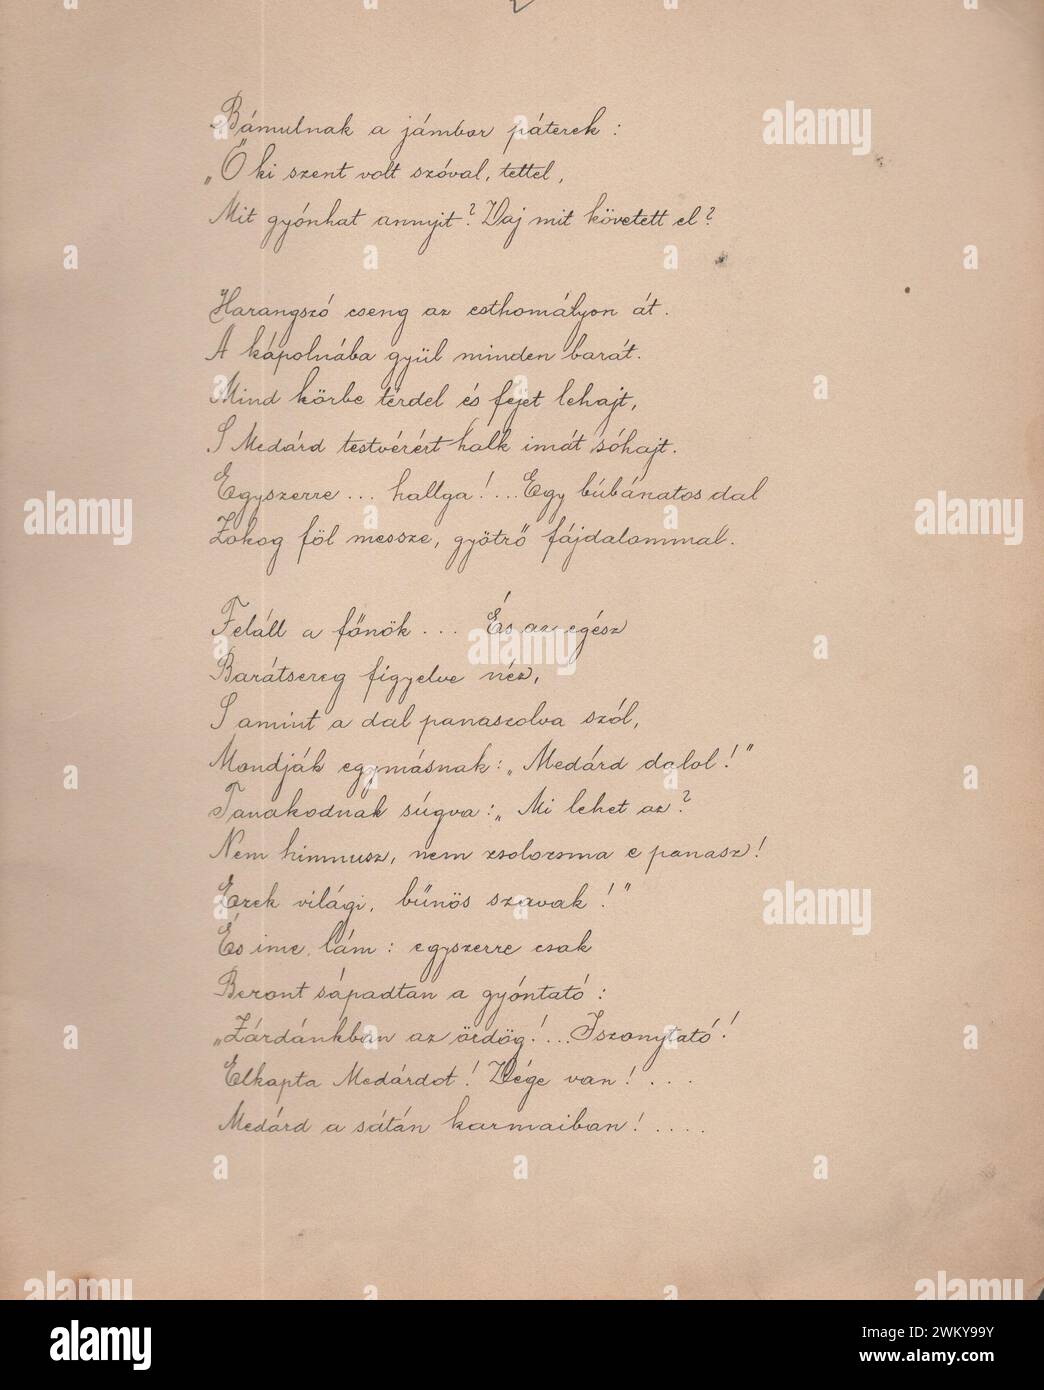 Bámulnak a jámbor páterek :
„Ő ki szent volt szóval, tettel,
Mit gyónhat annyit? Vaj mit követett el?
Harangszó cseng az esthomályon át.
A kápolnába gyül minden barát.
Mind körbe térdel és fejet lehajt,
S Medárd testvérért halk imát sóhajt.
Egyszerre ... hallga! ... Egy búbánatos dal
Zokog föl messze, gyötrő fájdalommal.
Feláll a főnök ... És az egész
Barátsereg figyelve néz,
S amint a dal panaszolva szól,
Mondják egymásnak : „Medárd dalol!"
Tanakodnak súgva : „Mi lehet az?
Nem himnusz, nem zsolozsma e panasz!
Ezek világi, bűnös szavak!"
És ime, lám : egyszerre csak
Beront sápadtan a gyóntató :
„Zárdánkban az ördög! ... Iszonytató!
Elkapta Medárdot! Vége van! ...
Medárd a sátán karmaiban! ....
alamy
alamy
Image ID: 2WKY99Y
www.alamy.com